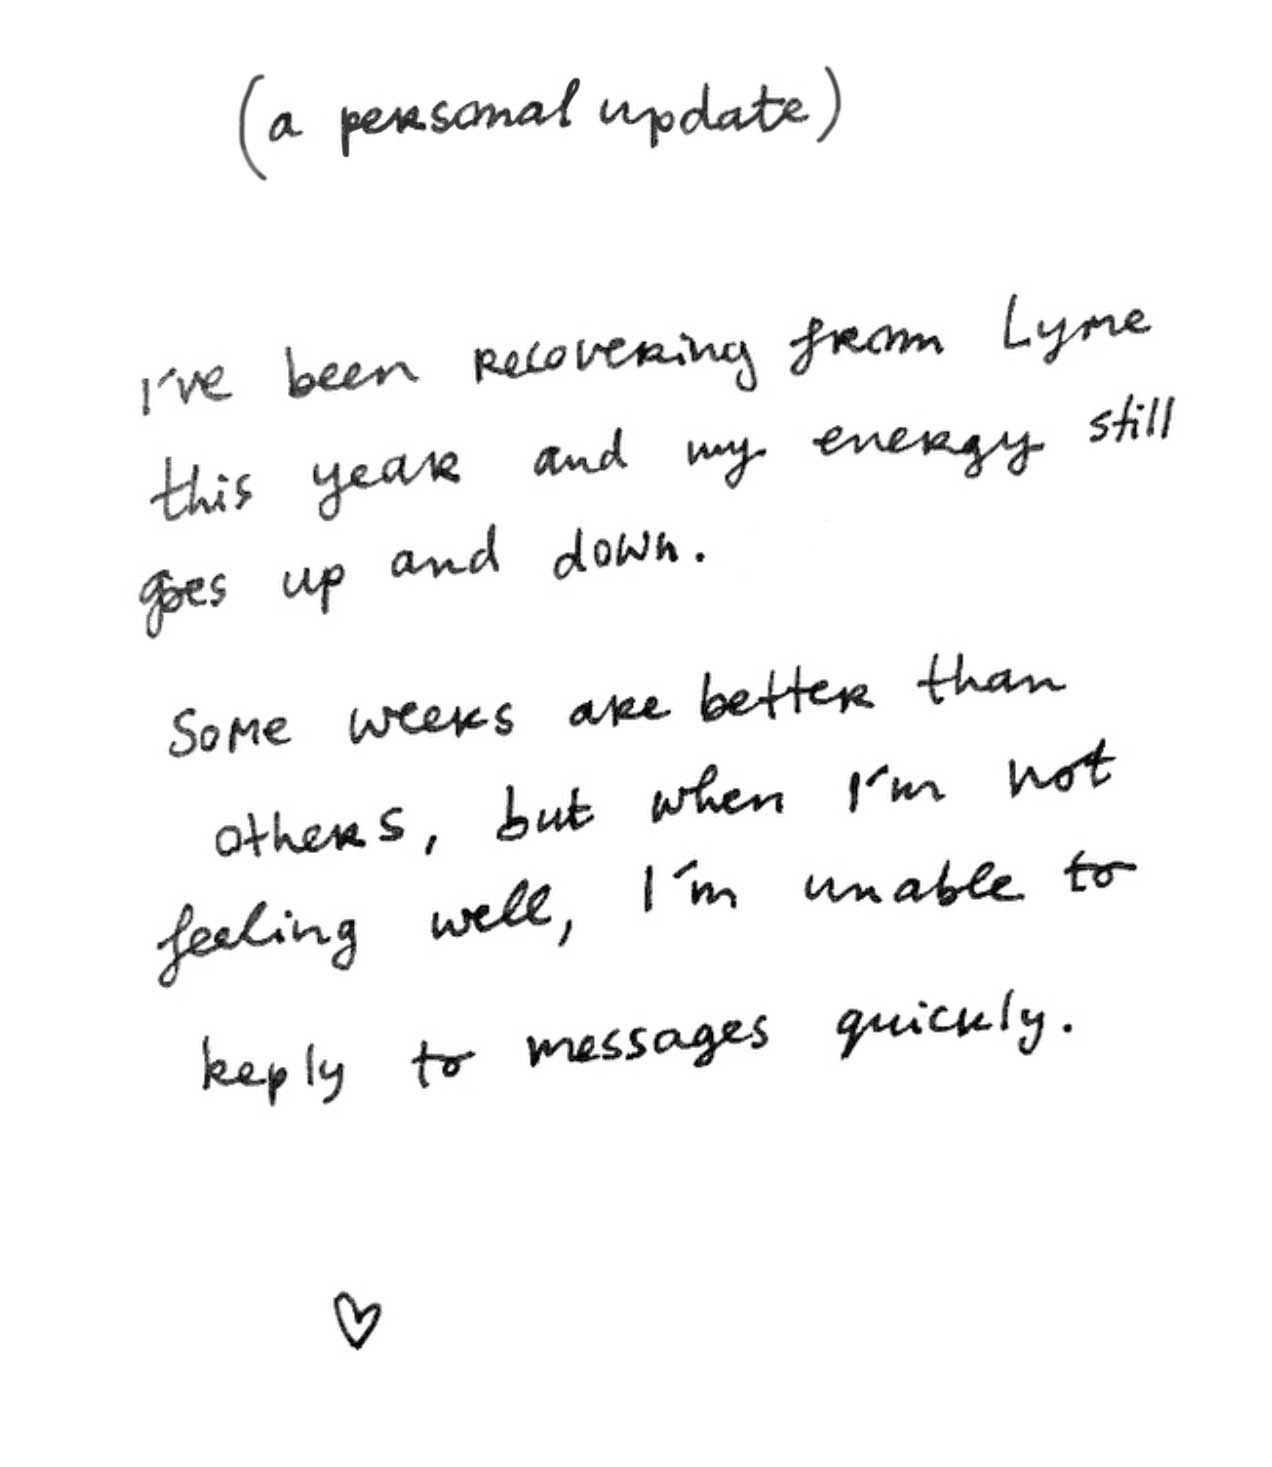 (a personal update)
I've been recovering from Lyme
this year and my energy still
goes up and down.
Some weeks are better than
others, but when I'm not
feeling well, I'm unable to
reply to messages quickly.